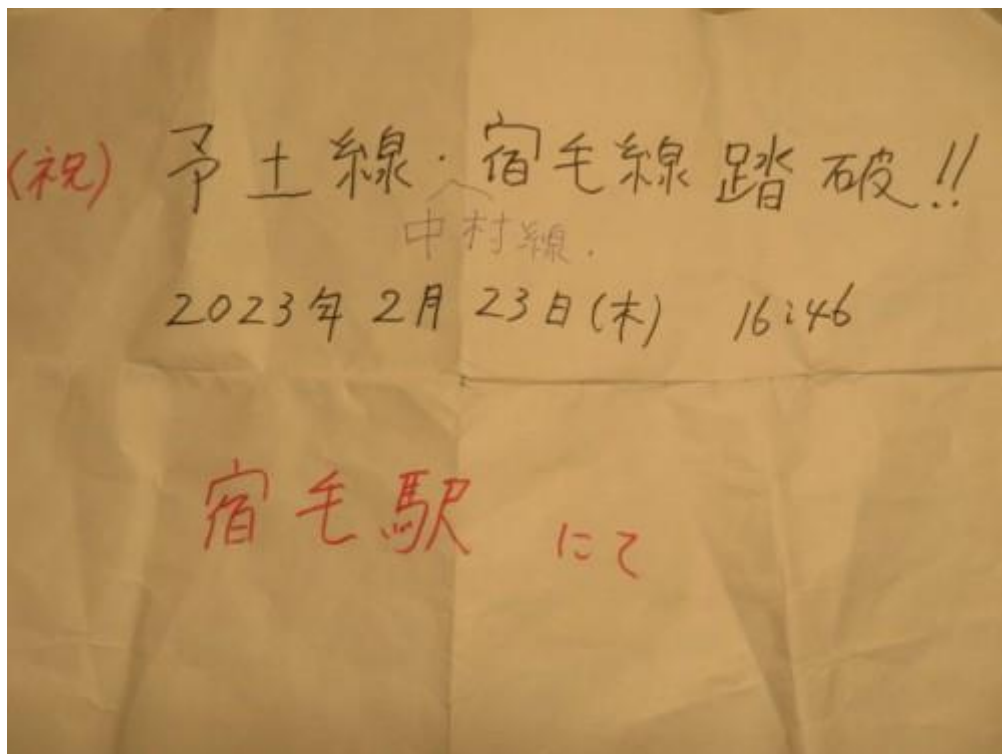 (祝) 予土線・宿毛線踏破!!
中村線.
2023年 2月 23日(木) 16:46
宿毛駅 にて